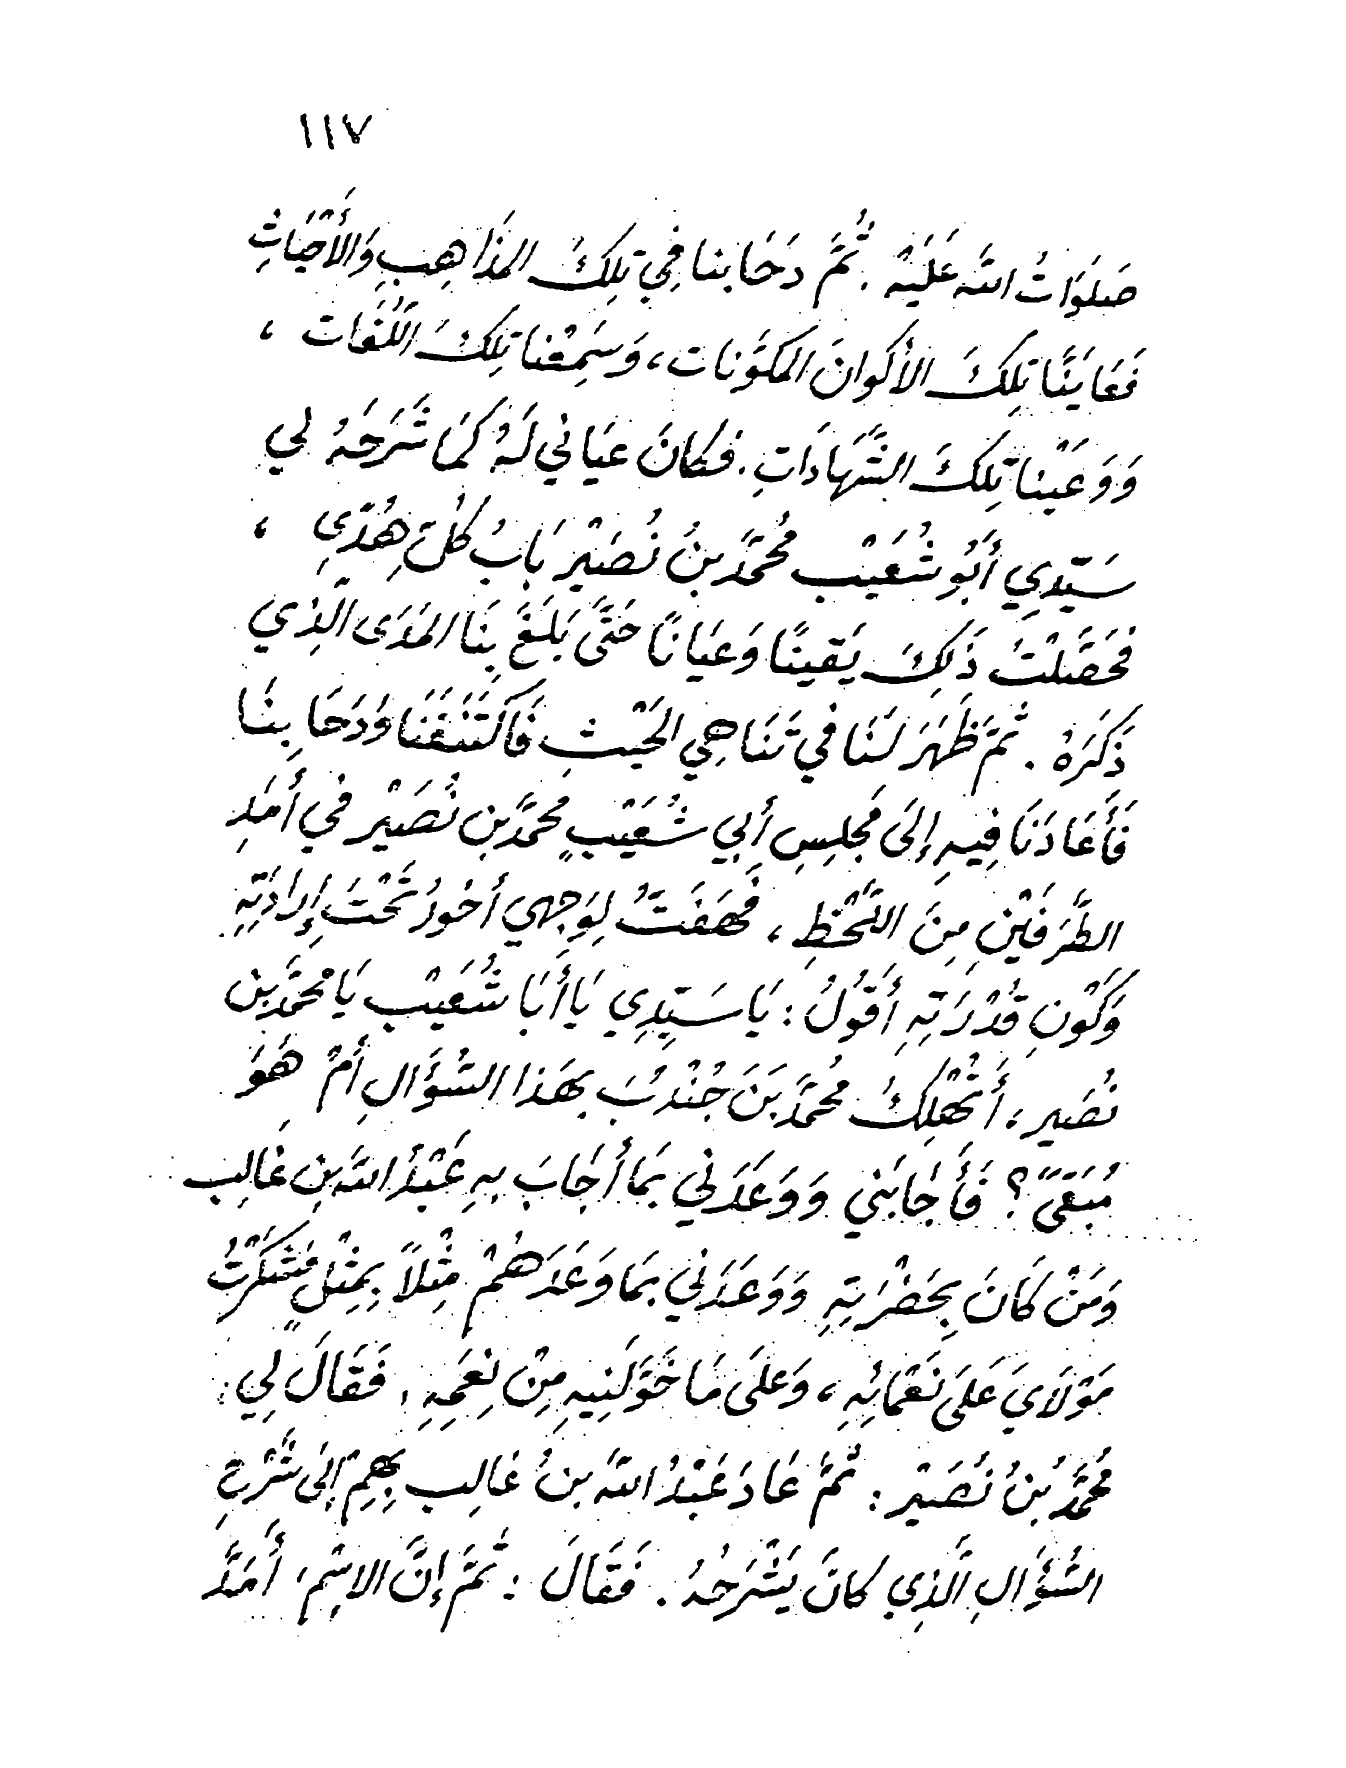 ١١٧
صَلَوَاتُ اللَّه عَلَيْه . ثُمَّ دَحَا بنا فِي تِلكَ المَذَاهِبِ وَالأَحْيَاثِ
فَعَايَنَّا تِلكَ الأكْوانَ المكوَّنات ، وَسَمِعْنا تِلكَ اللُّغَات ،
وَوَعَيْنا تِلكَ الشَّهَادَاتِ . فكانَ عيَاني لَهُ كَمَا شَرَحَهُ لي
سَيّدِي أَبُو شُعَيْب محُمَّد بنُ نُصَيْر بَابُ كُلِّ هِدُىً ،
فحَصَّلْتُ ذَلِكَ يَقينًا وَعيَانًا حَتَّى بَلَغَ بِنَا المَدَى الَّذِي
ذَكَرَهُ . ثُمَّ ظَهَرَ لَنَا في تَنَاهِي الحَيْثِ فَاكتَنَفَنَا وَدَحَا بِنَا
فَأَعَادَنَا فِيهِ إلىَ مَجلِسِ أبِي شُعَيْبٍ محمَّد بن نُصَيْر في أمَدِ
الطَّرَفَيْنِ مِنَ اللَّحْظِ ، فَهَفَتُّ لِوَجِهي أخُورُ تَحْتَ إِرادَتِهِ
وَكَوْنِ قُدْرَتِهِ أقُولُ : يَا سَيّدِي يَا أبَا شُعَيْب يَا محمَّد بن
نُصَير ، أتُهْلِكُ محُمَّد بَنَ جُنْدُبَ بهَذا السُّؤَالِ أمْ هَوَ
مُبَقىً ؟ فَأجَابَني وَوَعَدَني بمَا أجَابَ بهِ عَبْدُ اللَّه بنِ غَالِب
وَمَنْ كَانَ بِحَضْرَتِهِ وَوَعَدَني بمَا وَعَدَهُمْ مِثْلاً بِمِثْلٍ فَشَكَرْتُ
مَوْلَايَ عَلَى نَعْمَائِهِ ، وَعلَى مَا خَوَّلَنِيهِ مِنْ نِعَمِهِ . فَقَالَ لِي
مُحَمَّد بنُ نُصَيْر : ثُمَّ عَادَ عَبْدُ اللَّه بنُ غَالِب بهِمْ إلى شَرْحِ
السُّؤَالِ الَّذِي كانَ يَشْرَحُهُ . فَقَالَ : ثُمَّ إنَّ الاسْمَ أمَدَّ